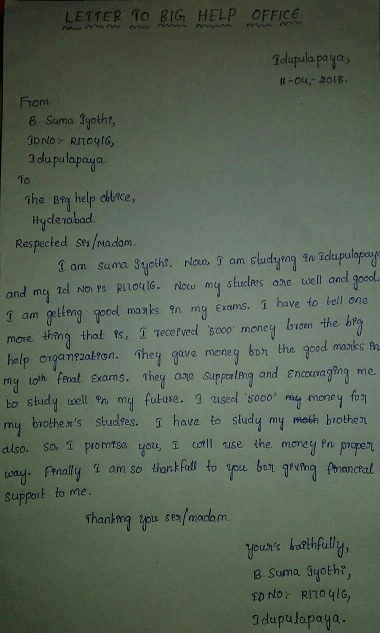 LETTER TO BIG HELP OFFICE
Idupulapaya,
11-04-2018.
From
B. Suma Jyothi,
ID NO:- R170416,
Idupulapaya.
To
The Big help office,
Hyderabad.
Respected Sir/Madam.
I am Suma Jyothi. Now, I am studying in Idupulapaya
and my Id No: is R170416. Now my studies are well and good.
I am getting good marks in my exams. I have to tell one
more thing that is, I received '5000' money from the big
help organization. They gave money for the good marks in
my 10th final exams. They are supporting and encouraging me
to study well in my future. I used '5000' my money for
my brother's studies. I have to study my moth brother
also. so, I promise you, I will use the money in proper
way. Finally I am so thankfull to you for giving financial
support to me.
Thanking you sir/madam.
your's faithfully,
B. Suma Jyothi,
ID NO: R170416,
Idupulapaya.